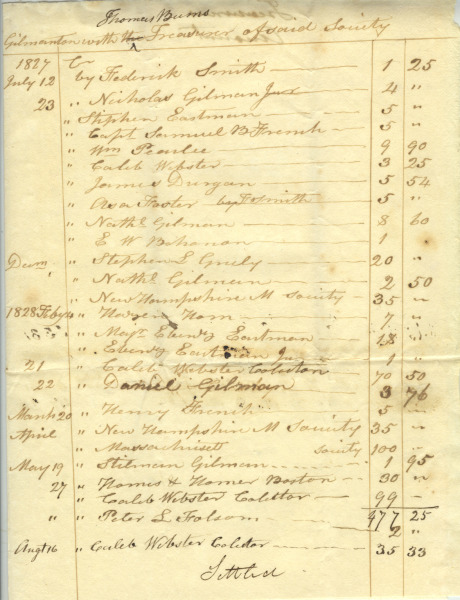 Thomas Burns
Gilmanton with the Treasurer of said Society
1827 Cr
July 12 by Frederick Smith 1 25
23 " Nicholas Gilman Jur 4 "
" Stephen Eastman 5 "
" Capt Samuel B French 5 "
" Wm Peaslee 9 90
" Caleb Webster 3 25
" James Durgan 5 54
" Asa Foster by F Smith 5 "
" Nathl Gilman 8 60
" E W Bohanon 1
Decm " Stephen L Greely 20 "
" Nathl Gilman 2 50
" New Hampshire M Society 35 "
1828 Feby " Horn 7 "
" Majr Ebenz Eastman "
" Ebenz Eastman Jun 1 "
21 " Caleb Webster Colector 70 50
22 " Daniel Gilman 3 76
March 20 " Henry French 5 "
April " New Hampshire M Society 35 "
" Massachusett Society 100 "
May 19 " Stilman Gilman 1 95
27 " & Homer Boston 30 "
" Caleb Webster Colector 99
" " Peter L Folsom 477 25
2 "
Augt 16 " Caleb Webster Colector 35 33
Settled